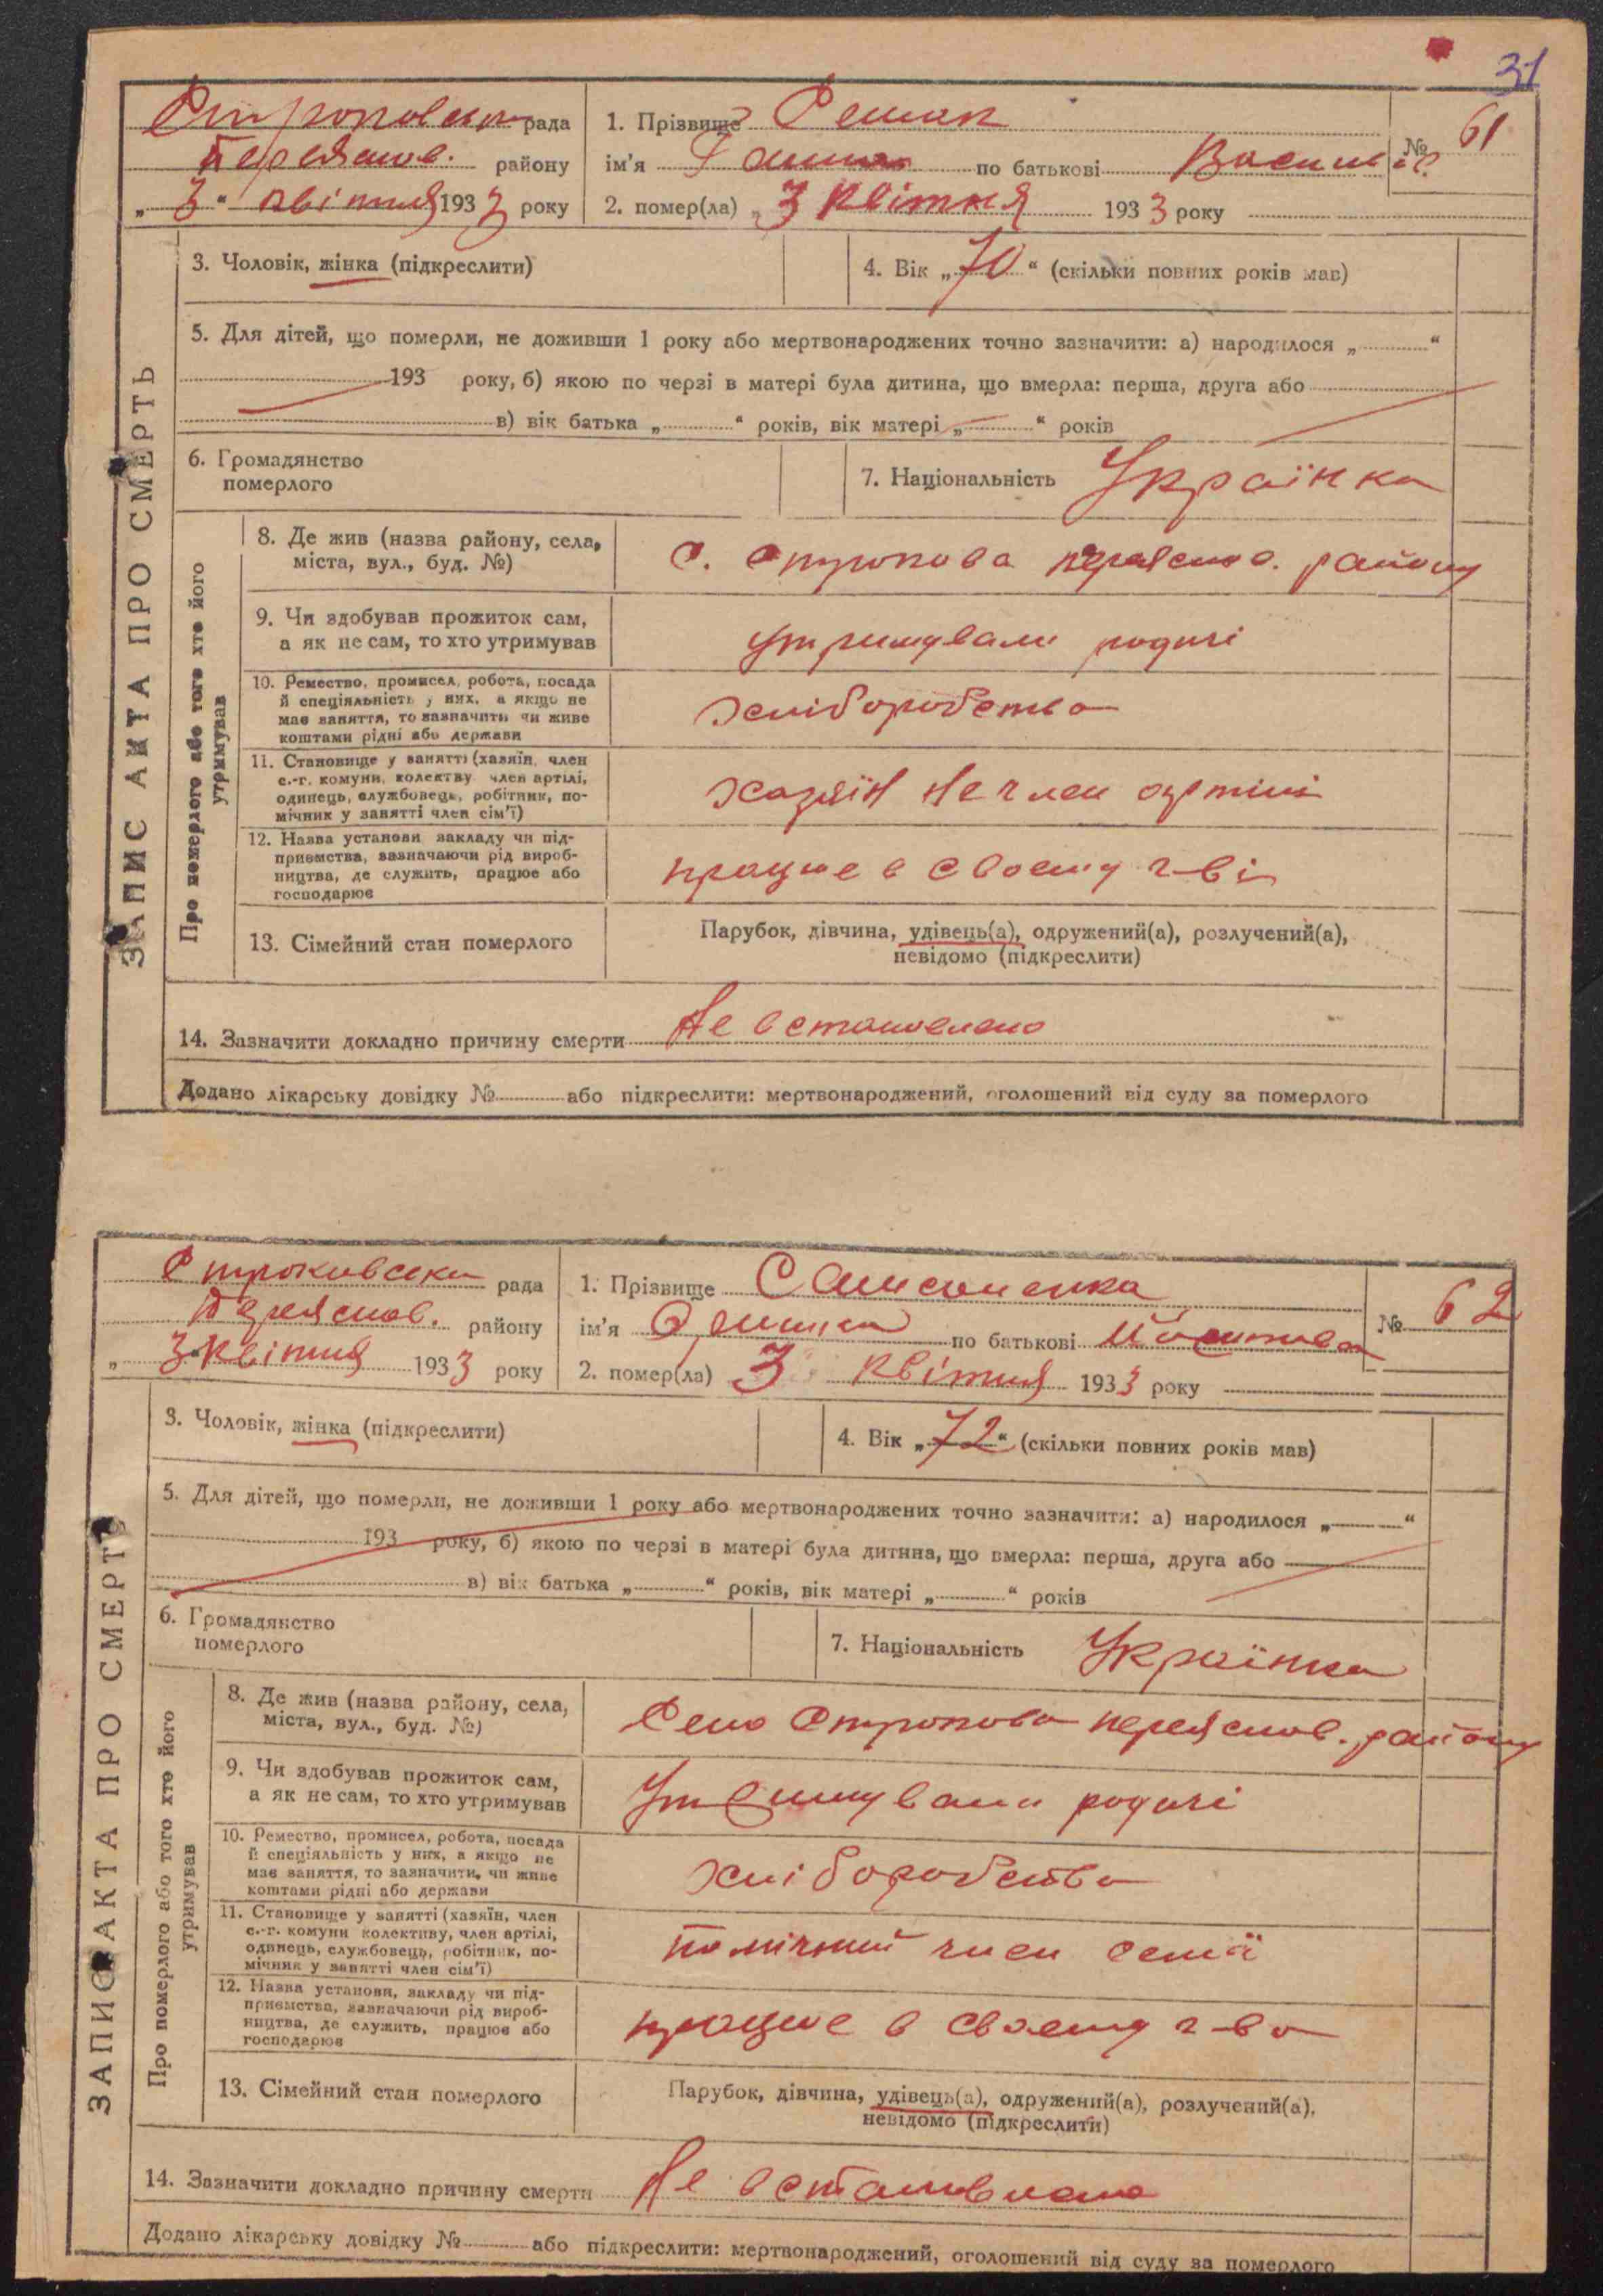 31
Строковська рада
Переяслов. району
„ 3 “ квітня 1933 року
1. Прізвище
ім'я Ганна по батькові
2. помер(ла) „ 3 квітня 1933 року
№ 61
3. Чоловік, жінка (підкреслити)
4. Вік „ 70 “ (скільки повних років мав)
5. Для дітей, що померли, не доживши 1 року або мертвонароджених точно зазначити: а) народилося „ “
193 року, б) якою по черзі в матері була дитина, що вмерла: перша, друга або
в) вік батька „ “ років, вік матері „ “ років
6. Громадянство
померлого
7. Національність Українка
ЗАПИС АКТА ПРО СМЕРТЬ
Про померлого або того хто його
утримував
8. Де жив (назва району, села,
міста, вул., буд. №)
с. Строкова переяслов. району
9. Чи здобував прожиток сам,
а як не сам, то хто утримував
утримували родичі
10. Ремество, промисел, робота, посада
й спеціяльність у них, а якщо не
має заняття, то зазначити чи живе
коштами рідні або держави
хліборобство
11. Становище у занятті (хазяїн, член
с.-г. комуни, колективу, член артілі,
одинець, службовець, робітник, по-
мічник у занятті член сім'ї)
хазяїн не член артілі
12. Назва установи, закладу чи під-
приємства, зазначаючи рід вироб-
ництва, де служить, працює або
господарює
працює в своєму г-ві
13. Сімейний стан померлого
Парубок, дівчина, удівець(а), одружений(а), розлучений(а),
невідомо (підкреслити)
14. Зазначити докладно причину смерти Не встановлено
Додано лікарську довідку № або підкреслити: мертвонароджений, оголошений від суду за померлого
Строковська рада
Переяслов. району
„ 3 квітня 1933 року
1. Прізвище Самсоненко
ім'я Оришка по батькові
2. помер(ла) 3 квітня 1933 року
№ 62
3. Чоловік, жінка (підкреслити)
4. Вік „ 72 “ (скільки повних років мав)
5. Для дітей, що померли, не доживши 1 року або мертвонароджених точно зазначити: а) народилося „ “
193 року, б) якою по черзі в матері була дитина, що вмерла: перша, друга або
в) вік батька „ “ років, вік матері „ “ років
6. Громадянство
померлого
7. Національність Українка
ЗАПИС АКТА ПРО СМЕРТЬ
Про померлого або того хто його
утримував
8. Де жив (назва району, села,
міста, вул., буд. №)
Село Строкова переяслов. району
9. Чи здобував прожиток сам,
а як не сам, то хто утримував
Утримували родичі
10. Ремество, промисел, робота, посада
й спеціяльність у них, а якщо не
має заняття, то зазначити, чи живе
коштами рідні або держави
хліборобство
11. Становище у занятті (хазяїн, член
с.-г. комуни колективу, член артілі,
одинець, службовець, робітник, по-
мічник у занятті член сім'ї)
помічний член семї
12. Назва установи, закладу чи під-
приємства, зазначаючи рід вироб-
ництва, де служить, працює або
господарює
працює в своєму г-во
13. Сімейний стан померлого
Парубок, дівчина, удівець(а), одружений(а), розлучений(а),
невідомо (підкреслити)
14. Зазначити докладно причину смерти Не встановлено
Додано лікарську довідку № або підкреслити: мертвонароджений, оголошений від суду за померлого